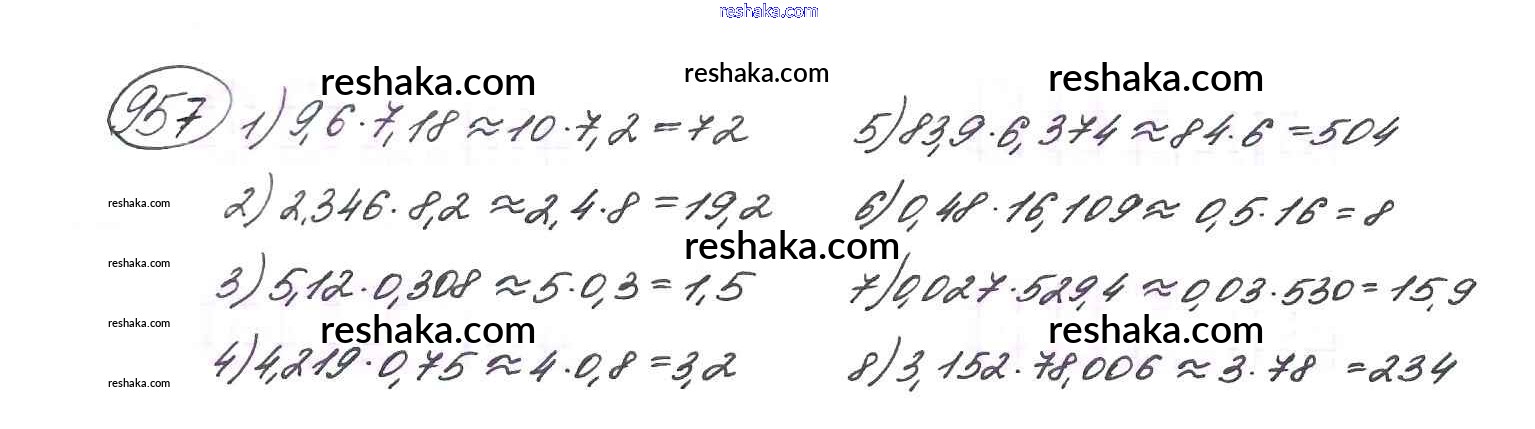 reshaka.com
reshaka.com reshaka.com reshaka.com
957 1) 9,6·7,18 ≈ 10·7,2 = 72
5) 83,9·6,374 ≈ 84·6 = 504
reshaka.com
2) 2,346·8,2 ≈ 2,4·8 = 19,2
6) 0,48·16,109 ≈ 0,5·16 = 8
reshaka.com
reshaka.com
3) 5,12·0,308 ≈ 5·0,3 = 1,5
7) 0,027·529,4 ≈ 0,03·530 = 15,9
reshaka.com
reshaka.com reshaka.com
4) 4,219·0,75 ≈ 4·0,8 = 3,2
8) 3,152·78,006 ≈ 3·78 = 234
reshaka.com